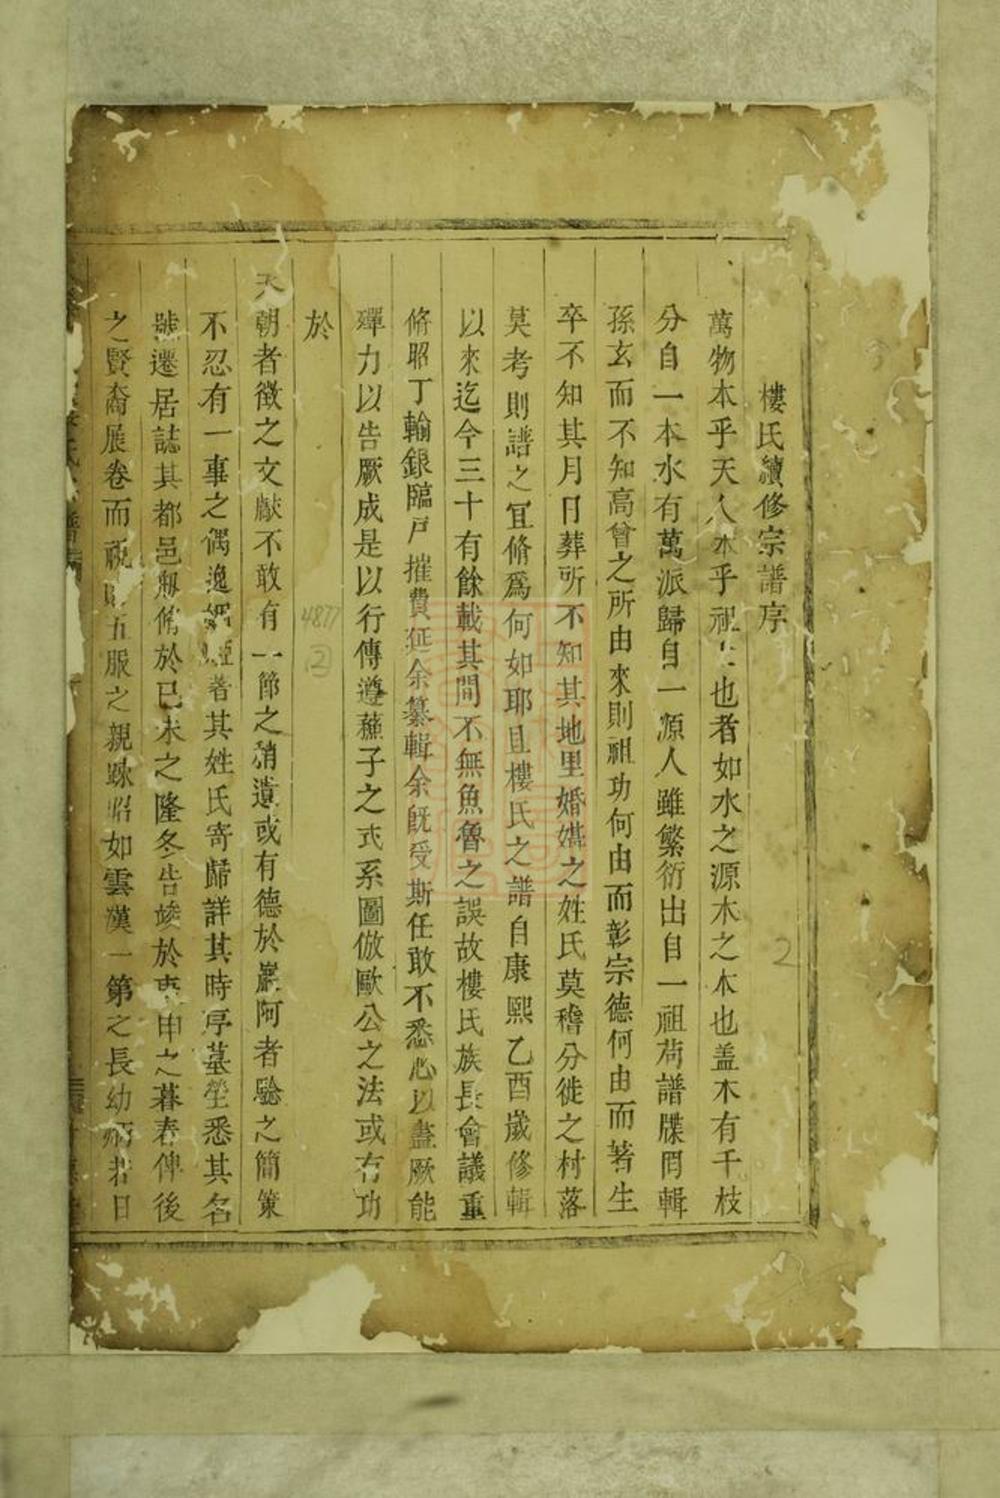 樓氏續修宗譜序
萬物本乎天人本乎祖 也者如水之源木之本也盖木有千枝
分自一本水有萬派歸自一源人雖繁衍出自一祖苟譜牒罔輯
孫玄而不知高曾之所由來則祖功何由而彰宗德何由而著生
卒不知其月日葬所不知其地里婚媾之姓氏莫稽分徙之村落
莫考則譜之宜脩爲何如耶且樓氏之譜自康熙乙酉歲修輯
以來迄今三十有餘載其間不無魚魯之誤故樓氏族長會議重
脩昭丁輸銀臨戸摧費延余纂輯余旣受斯任敢不悉心以盡厥能
殫力以告厥成是以行傳遵蘇子之式系圖倣歐公之法或有功
於
天朝者徵之文獻不敢有一節之稍遺或有德於巖阿者驗之簡策
不忍有一事之偶逸姻 著其姓氏寄歸詳其時序墓塋悉其名
號遷居誌其都邑 脩於已未之隆冬告竣於庚申之暮春俾後
之賢裔展卷而視 五服之親踈昭如雲漢一第之長幼炳若日
4877
②
2